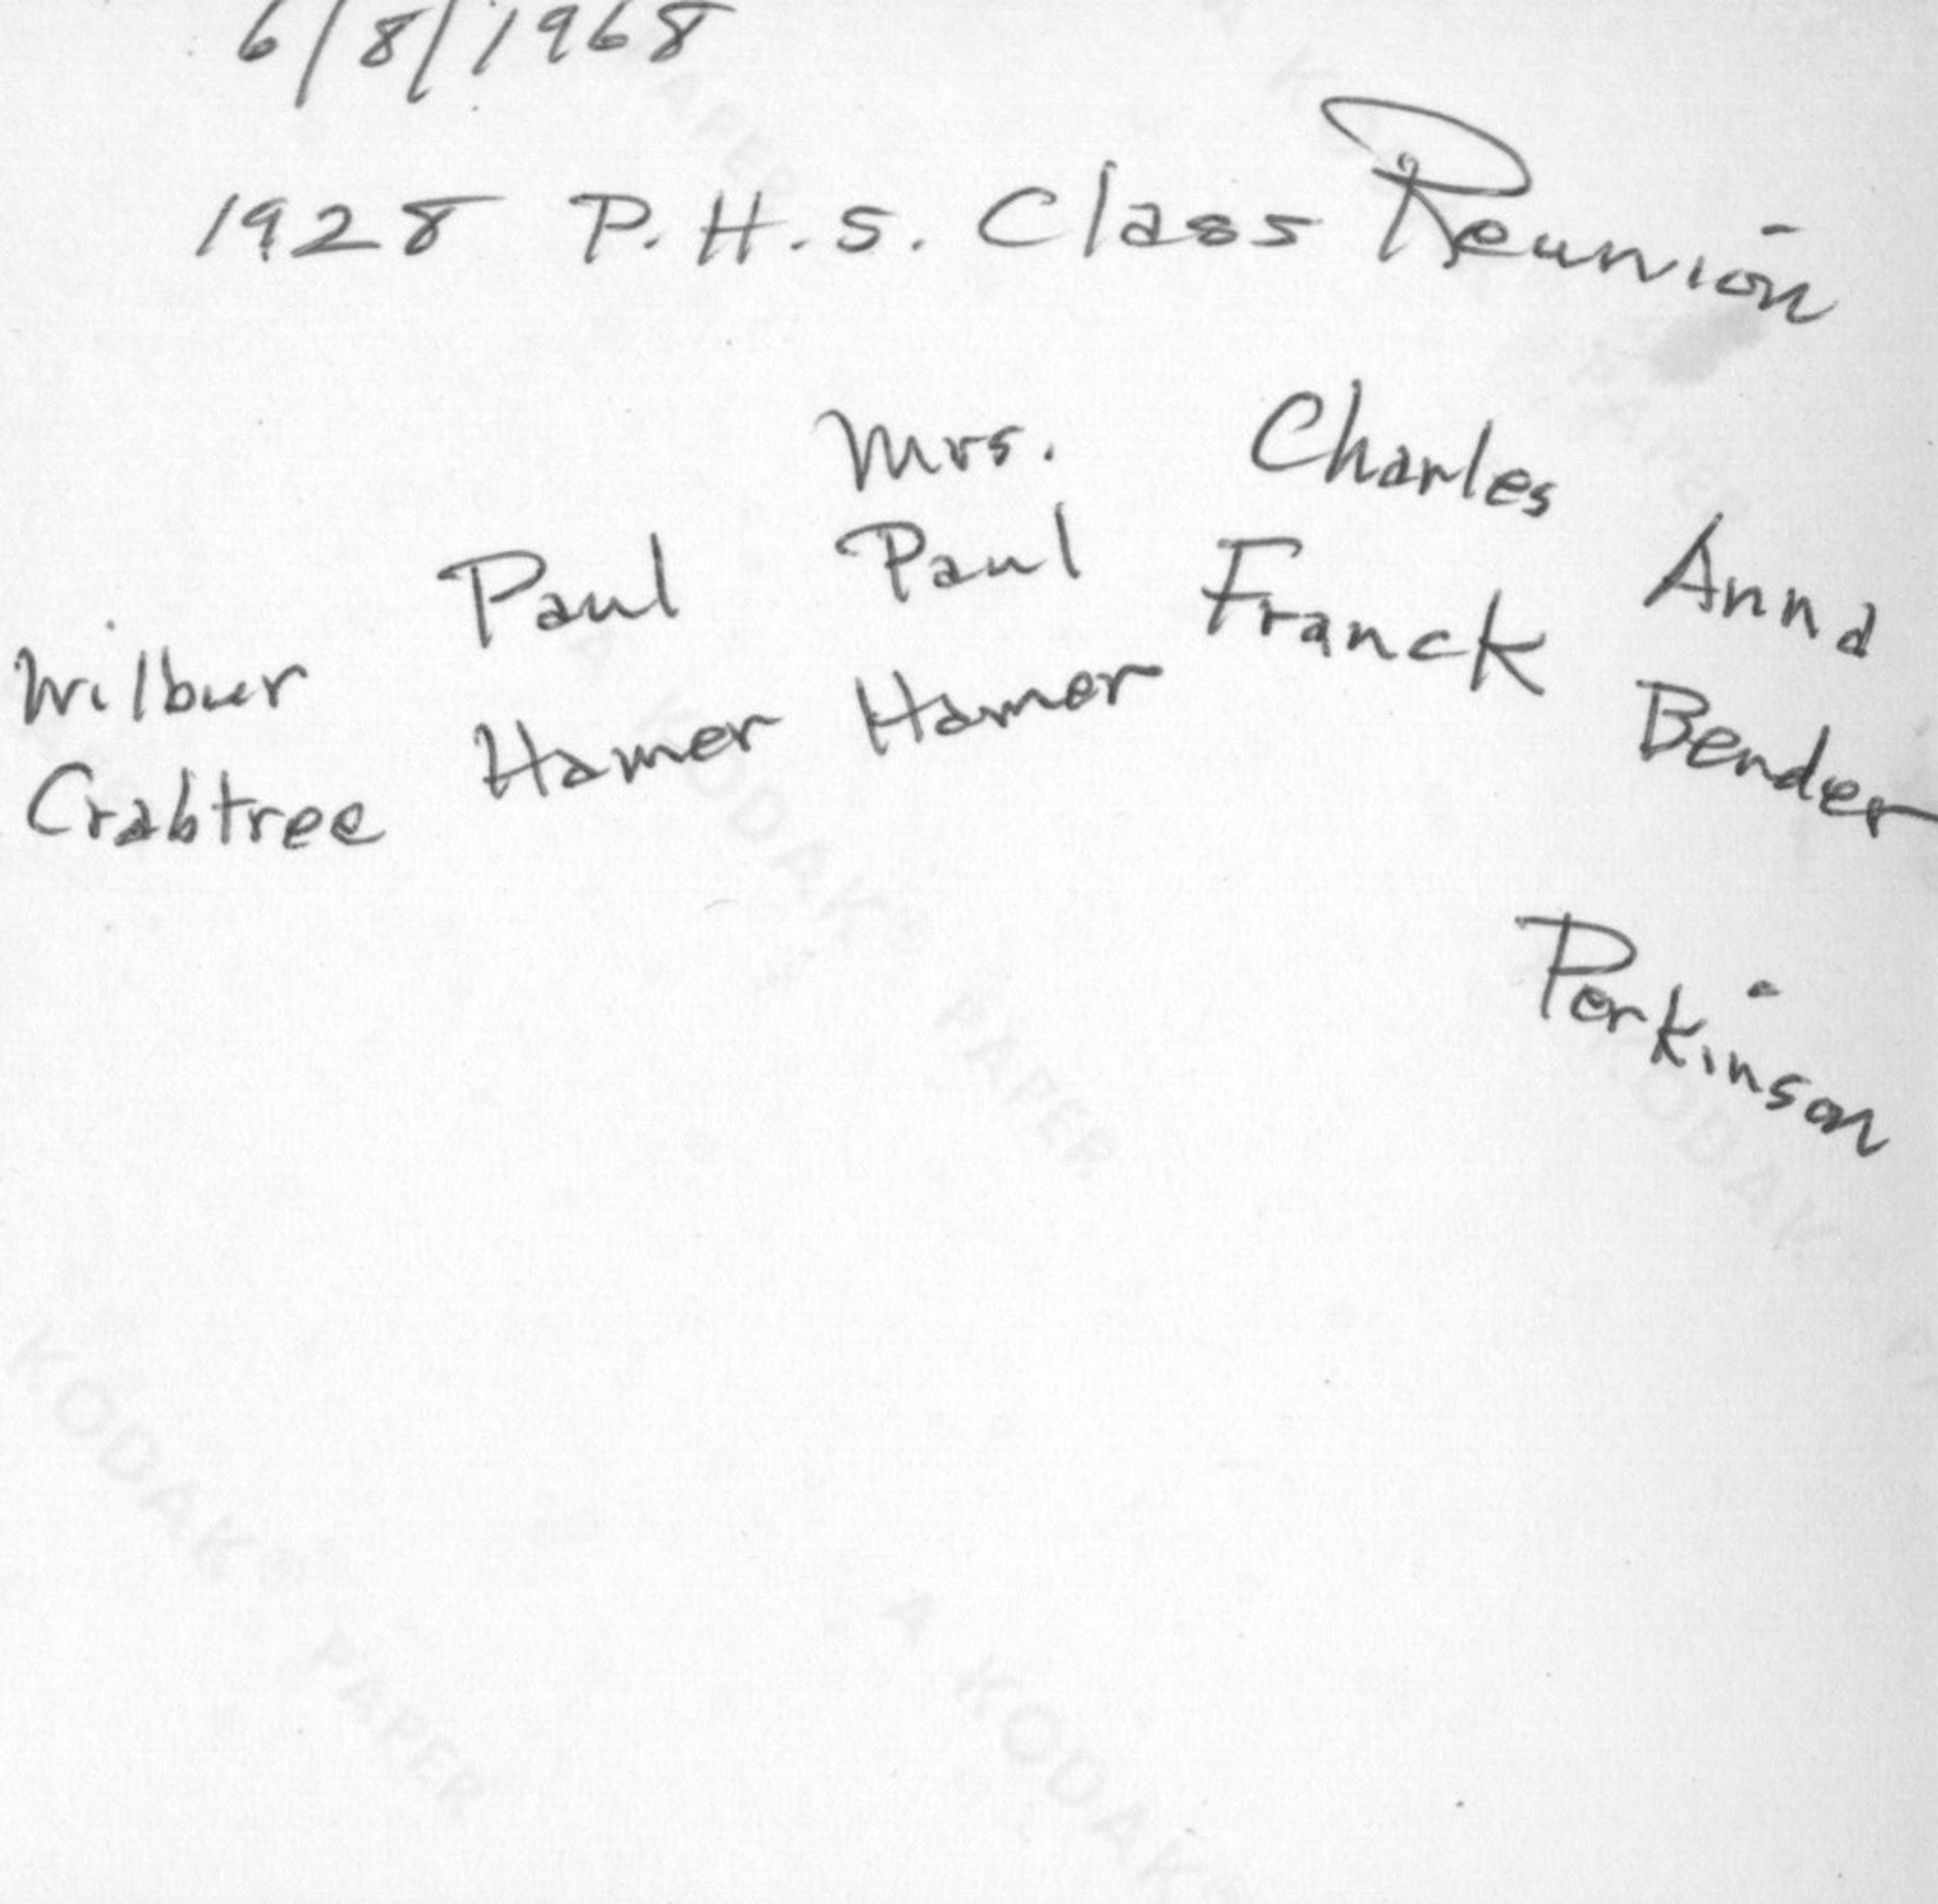 6/8/1968
1928 P.H.S. Class Reunion
Wilbur
Crabtree
Paul
Hamer
Mrs.
Paul
Hamer
Charles
Franck
Anna
Bender
Perkinson
KODAK
PAPER
A KODAK® PAPER
KODAK
KODAK® PAPER
A KODAK®